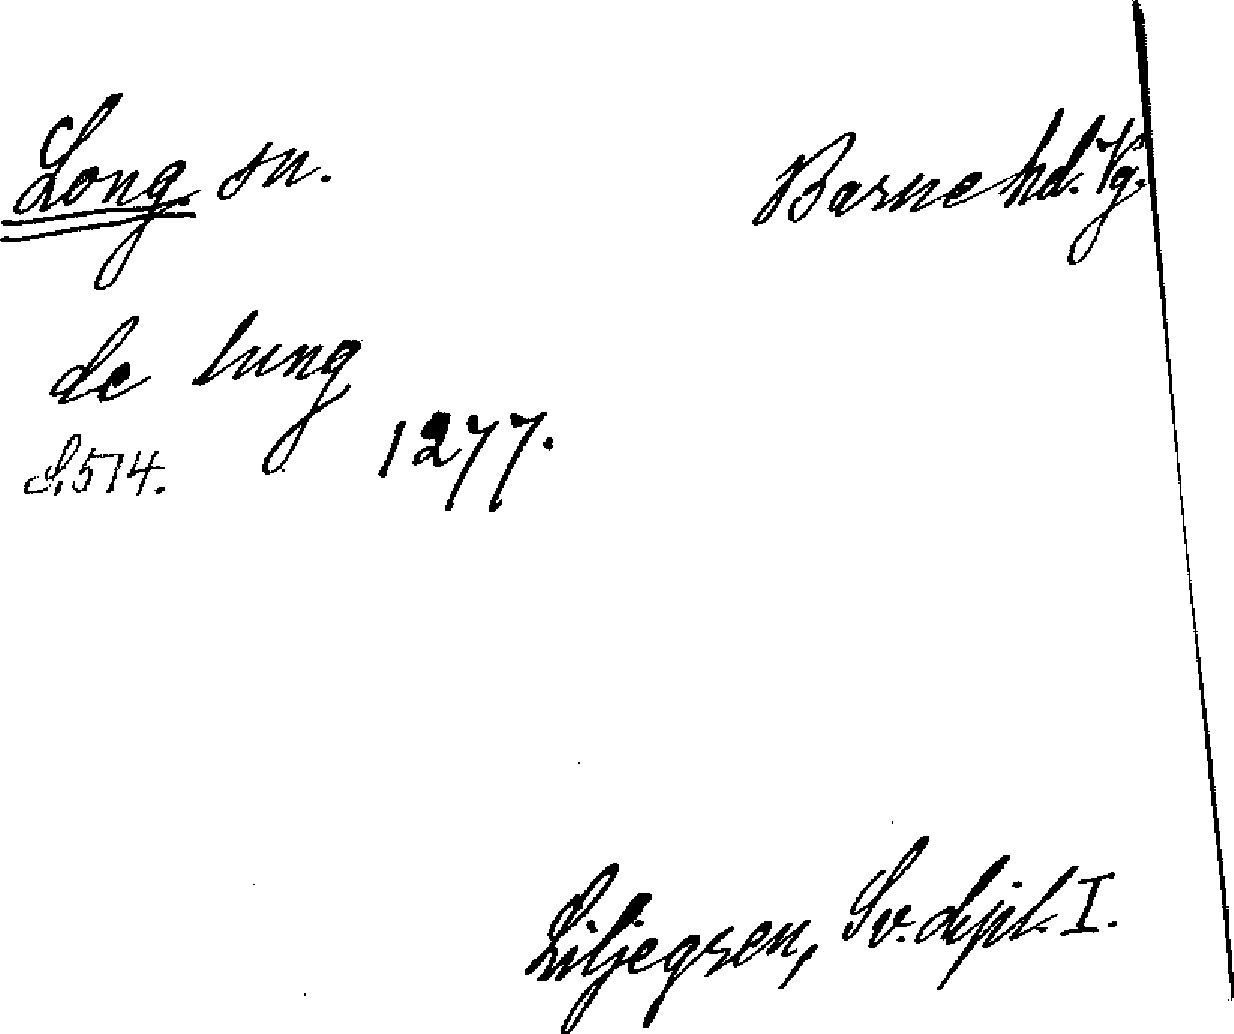 Long sn. Barne hd. Vg.
de lung
1277.
S. 514.
Liljegren, Sv. dipl. I.